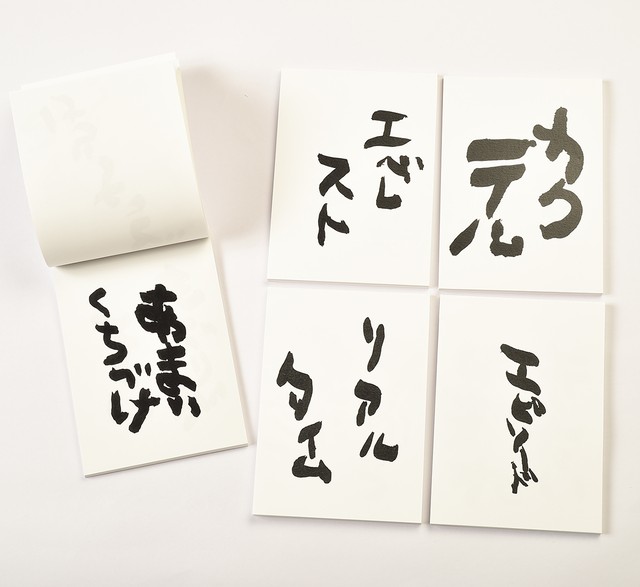 あまい
くちづけ
エベレ
スト
カク
テル
リアル
タイム
エピソード